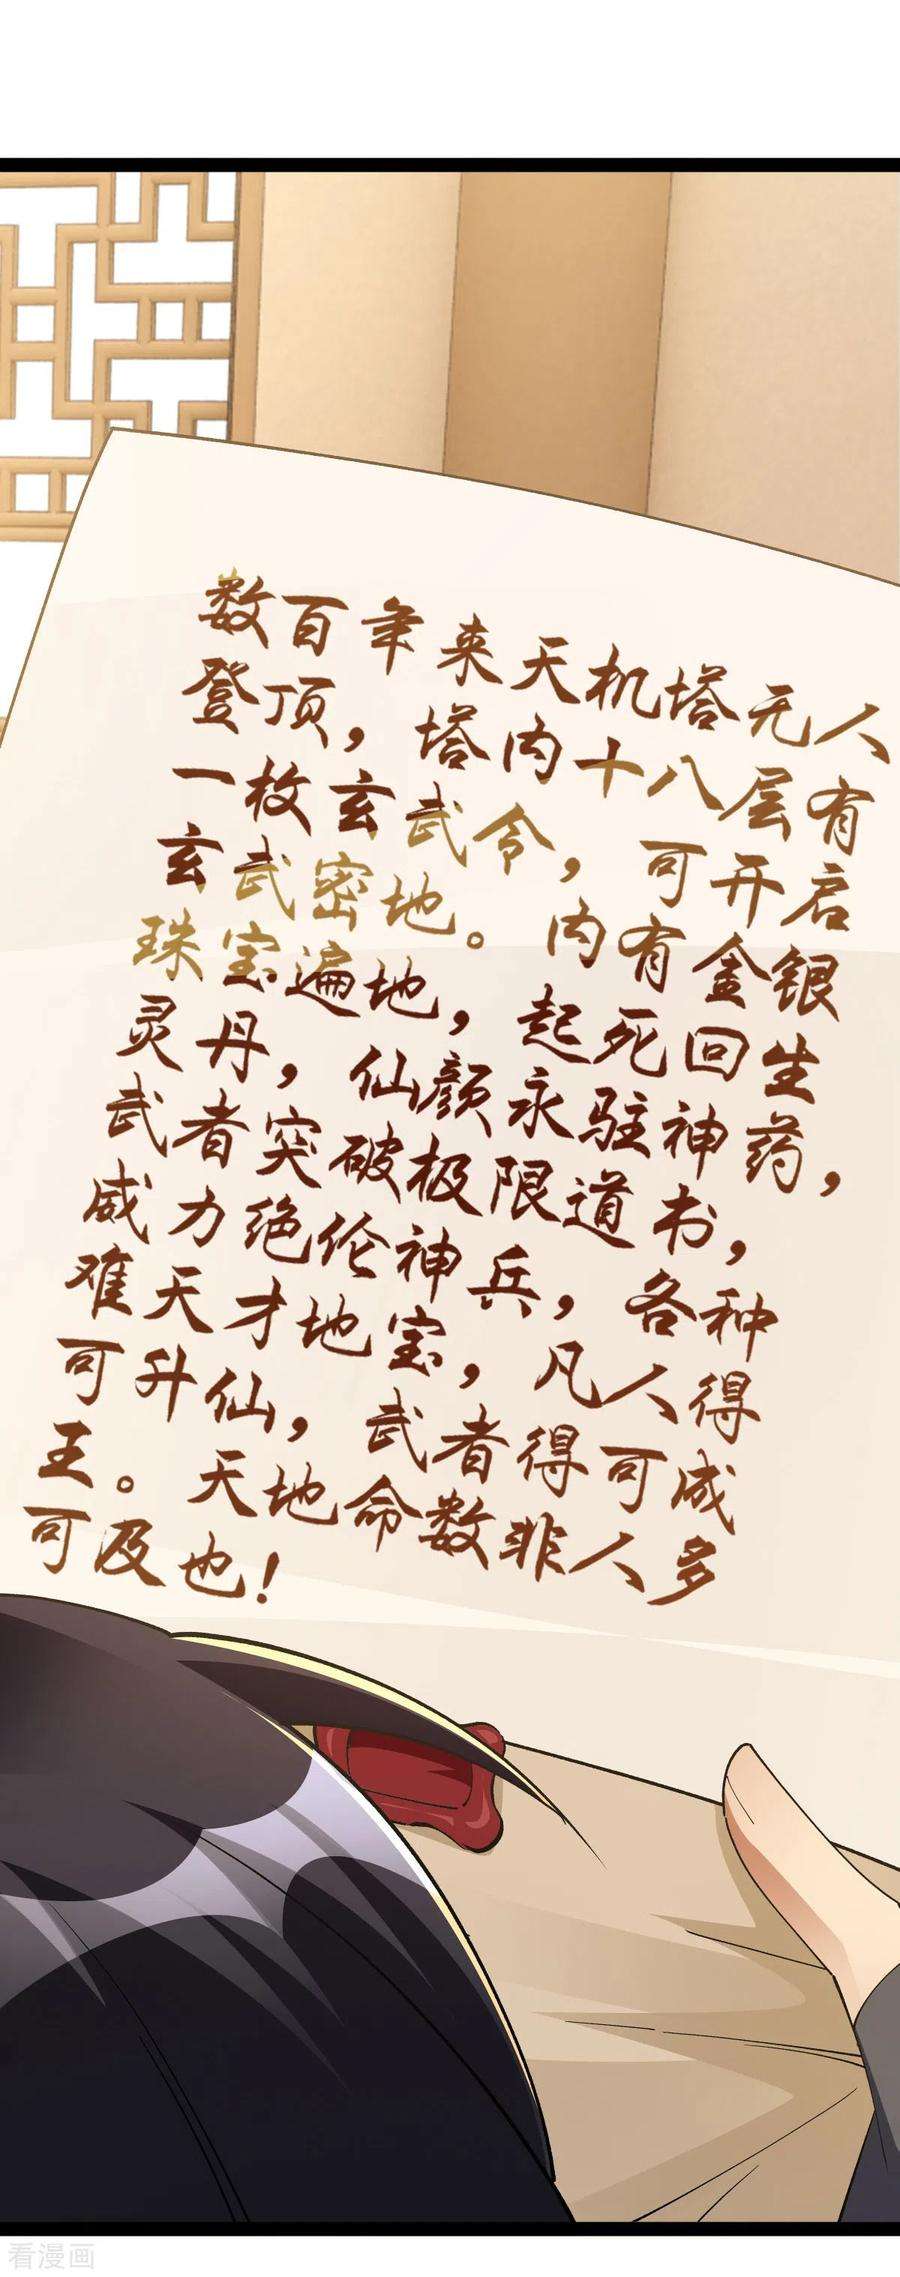 数百年来天机塔无人
登顶，塔内十八层有
一枚玄武令，可开启
玄武密地。内有金银
珠宝遍地，起死回生
灵丹，仙颜永驻神药，
武者突破极限道书，
威力绝伦神兵，各种
难天才地宝，凡人得
可升仙，武者得可成
王。天地命数非人多
可及也！
看漫画